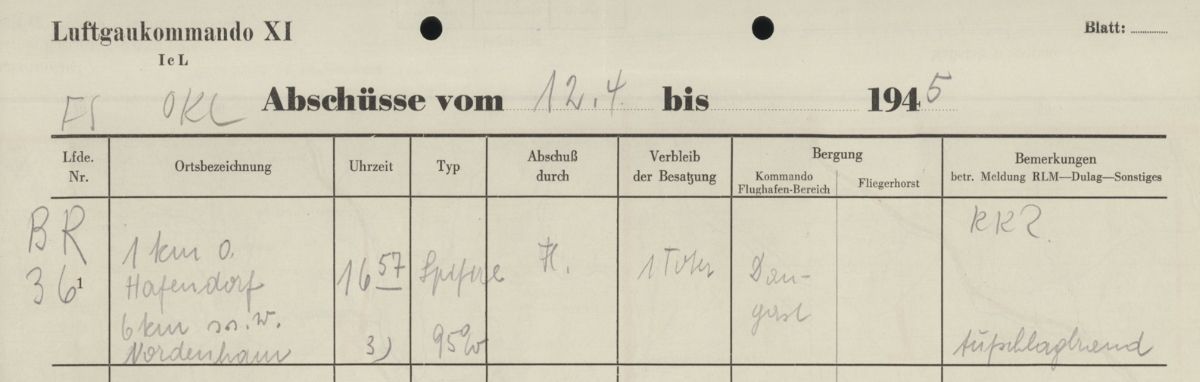 Luftgaukommando XI
Blatt:
IcL
FS OKL Abschüsse vom 12.4. bis 1945
Lfde. Nr.
Ortsbezeichnung
Uhrzeit
Typ
Abschuß durch
Verbleib der Besatzung
Bergung
Kommando Flughafen-Bereich
Fliegerhorst
Bemerkungen
betr. Meldung RLM—Dulag—Sonstiges
BR
36
1
1 km o.
Hafendorf
6 km
Nordenham
16 57
3)
Spitfire
95%
Fl.
1 Toter
Dan-
gast
KKZ.
Aufschlagbrand